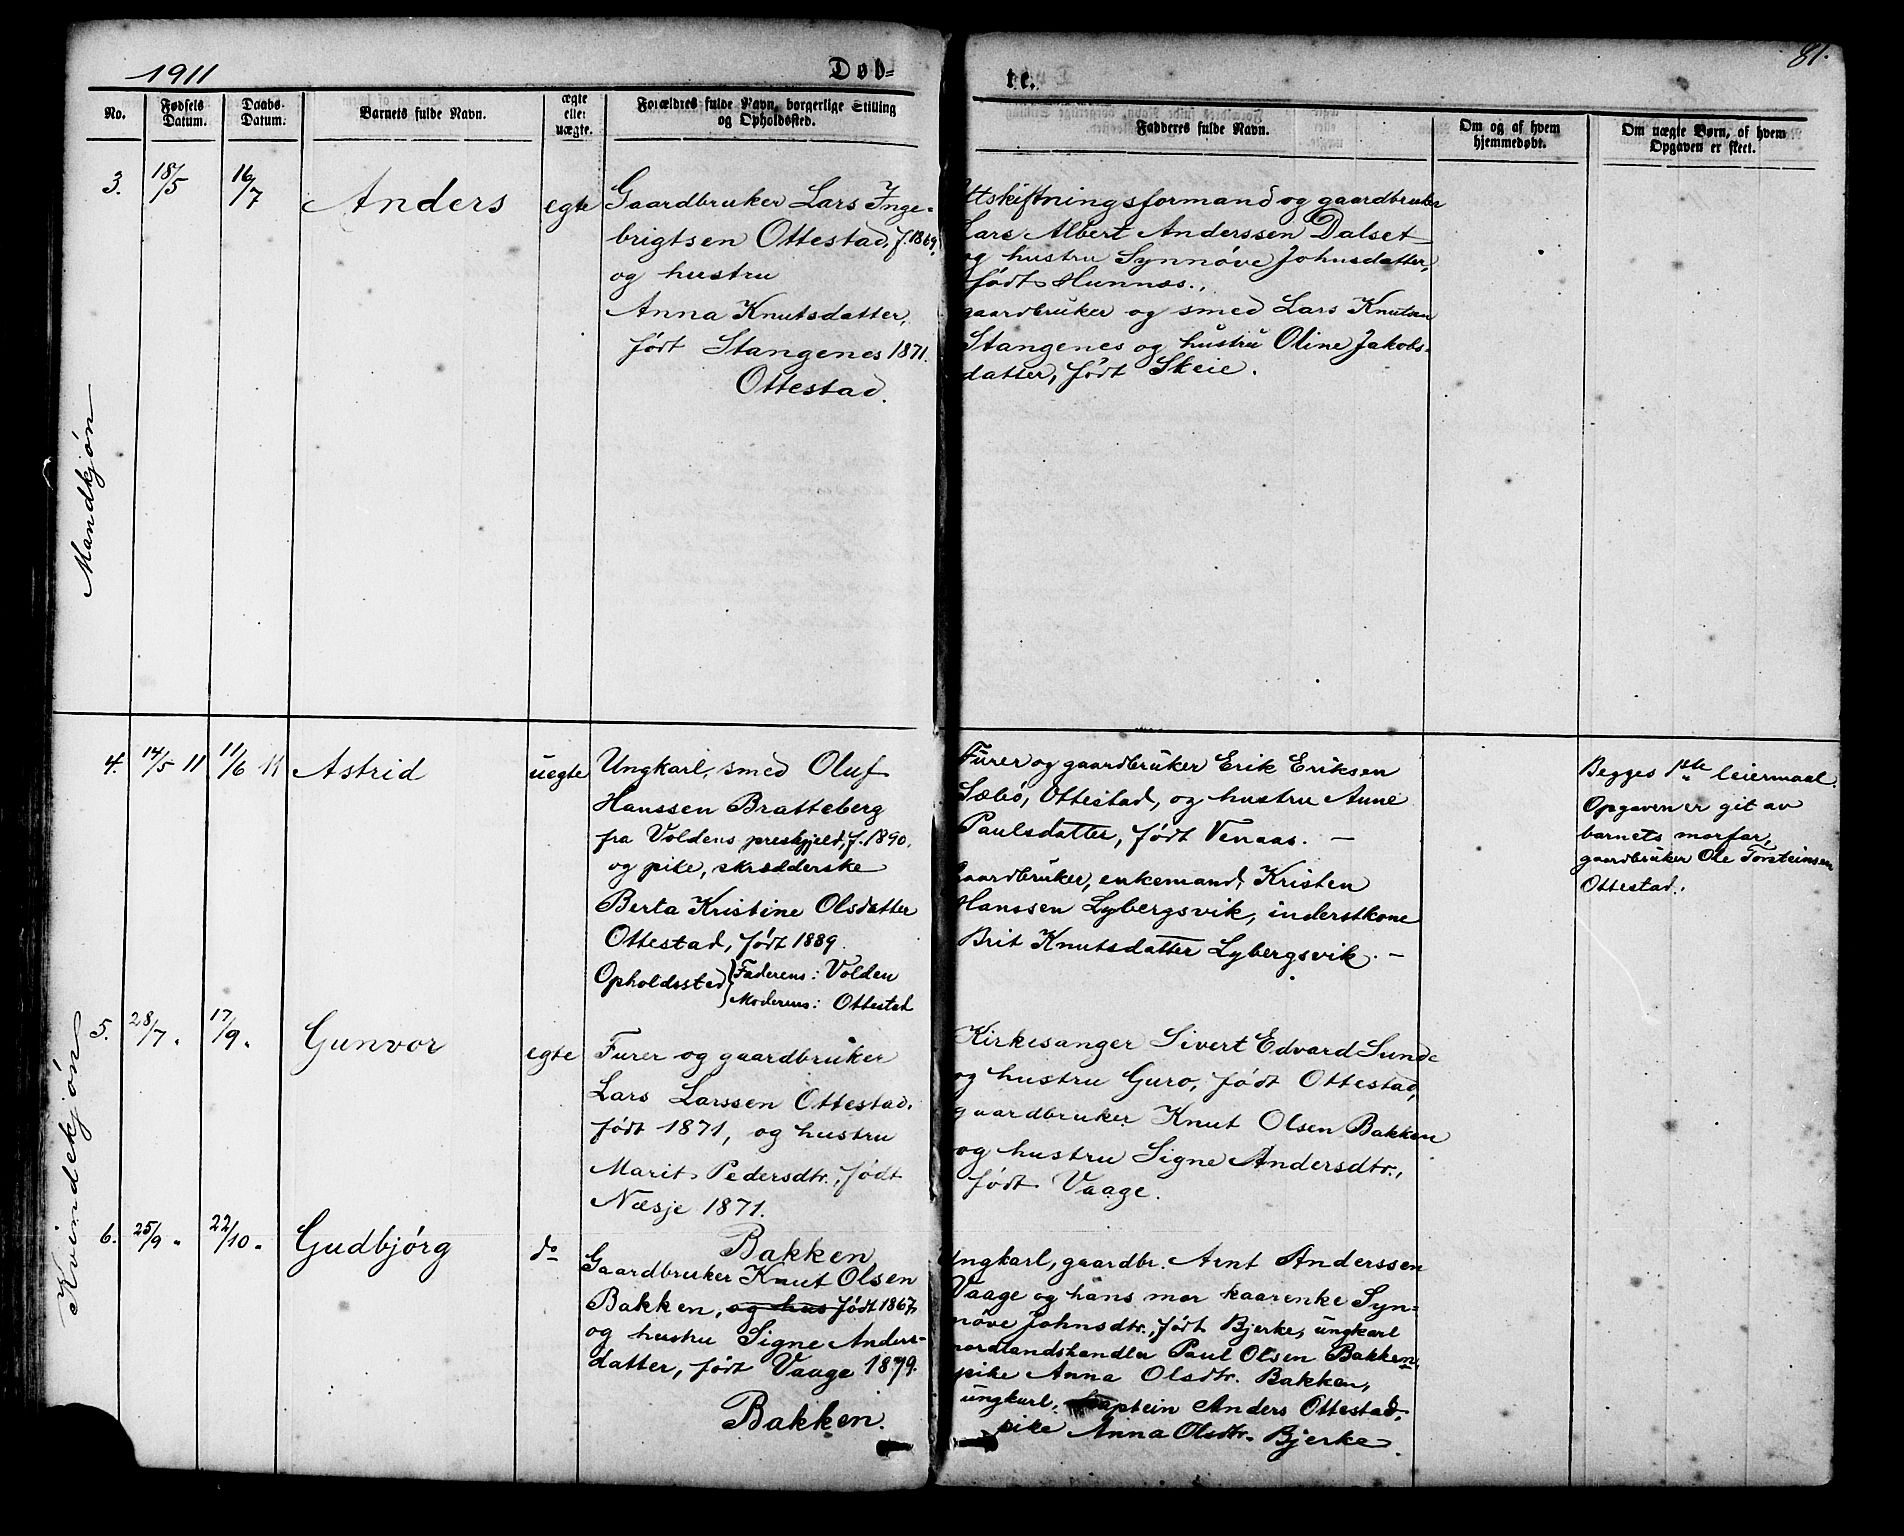 1911
Døb-
te.
81.
No.
Fødsels Datum.
Daabs-Datum.
Barnets fulde Navn.
ægte eller uægte.
Forældres fulde Navn, borgerlige Stilling
og Opholdssted.
Fadderes fulde Navn.
Om og af hvem
hjemmedøbt.
Om uægte Børn, af hvem
Opgaven er skeet.
Mandkjøn
3. 18/5 16/7 Anders egte
Gaardbruker Lars Inge-
brigtsen Ottestad, f. 1869,
og hustru
Anna Knutsdatter,
født Stangenes 1871.
Ottestad.
Utskiftningsformand og gaardbruker
Lars Albert Anderssen Dalset
og hustru Synnøve Johnsdatter,
født Hunnes.,
gaardbruker og smed Lars Knutsen
Stangenes og hustru Oline Jakobs-
datter, født Skeie.
Kvindekjøn
4. 14/5 11 11/6 11 Astrid uegte
Ungkarl, smed Oluf
Hanssen Bratteberg
fra Voldens prestgjeld, f. 1890.
og pike, skrædderske
Berta Kristine Olsdatter
Ottestad, født 1889.
Opholdssted { Faderens: Volden
Moderens: Ottestad
Furer og gaardbruker Erik Eriksen
Sæbø, Ottestad, og hustru Anne
Paulsdatter, født Venaas. —
Gaardbruker, enkemand, Kristen
Hanssen Lybergsvik, inderstkone
Brit Knutsdatter Lybergsvik. —
Begges 1ste leiermaal.
Opgaven er git av
barnets morfar,
gaardbruker Ole Torsteinsen
Ottestad.
5. 28/7 " 17/9 " Gunvor egte
Furer og gaardbruker
Lars Larssen Ottestad,
født 1871, og hustru
Marit Pedersdtr., født
Næsje 1871.
Bakken
Kirkesanger Sivert Edvard Sunde
og hustru Guro, født Ottestad,
gaardbruker Knut Olsen Bakken
og hustru Signe Andersdtr.,
født Vaage.
6. 25/9 " 22/10 " Gudbjørg do
Gaardbruker Knut Olsen
Bakken, og hus født 1867,
og hustru Signe Anders-
datter, født Vaage 1879.
Bakken.
Ungkarl, gaardbr. Arnt Anderssen
Vaage og hans mor kaarenke Syn-
nøve Johnsdtr., født Bjerke, ungkarl
nordlandshandler Paul Olsen Bakken,
pike Anna Olsdtr. Bakken,
ungkarl, kaptein Anders Ottestad,
pike Anna Olsdtr. Bjerke.